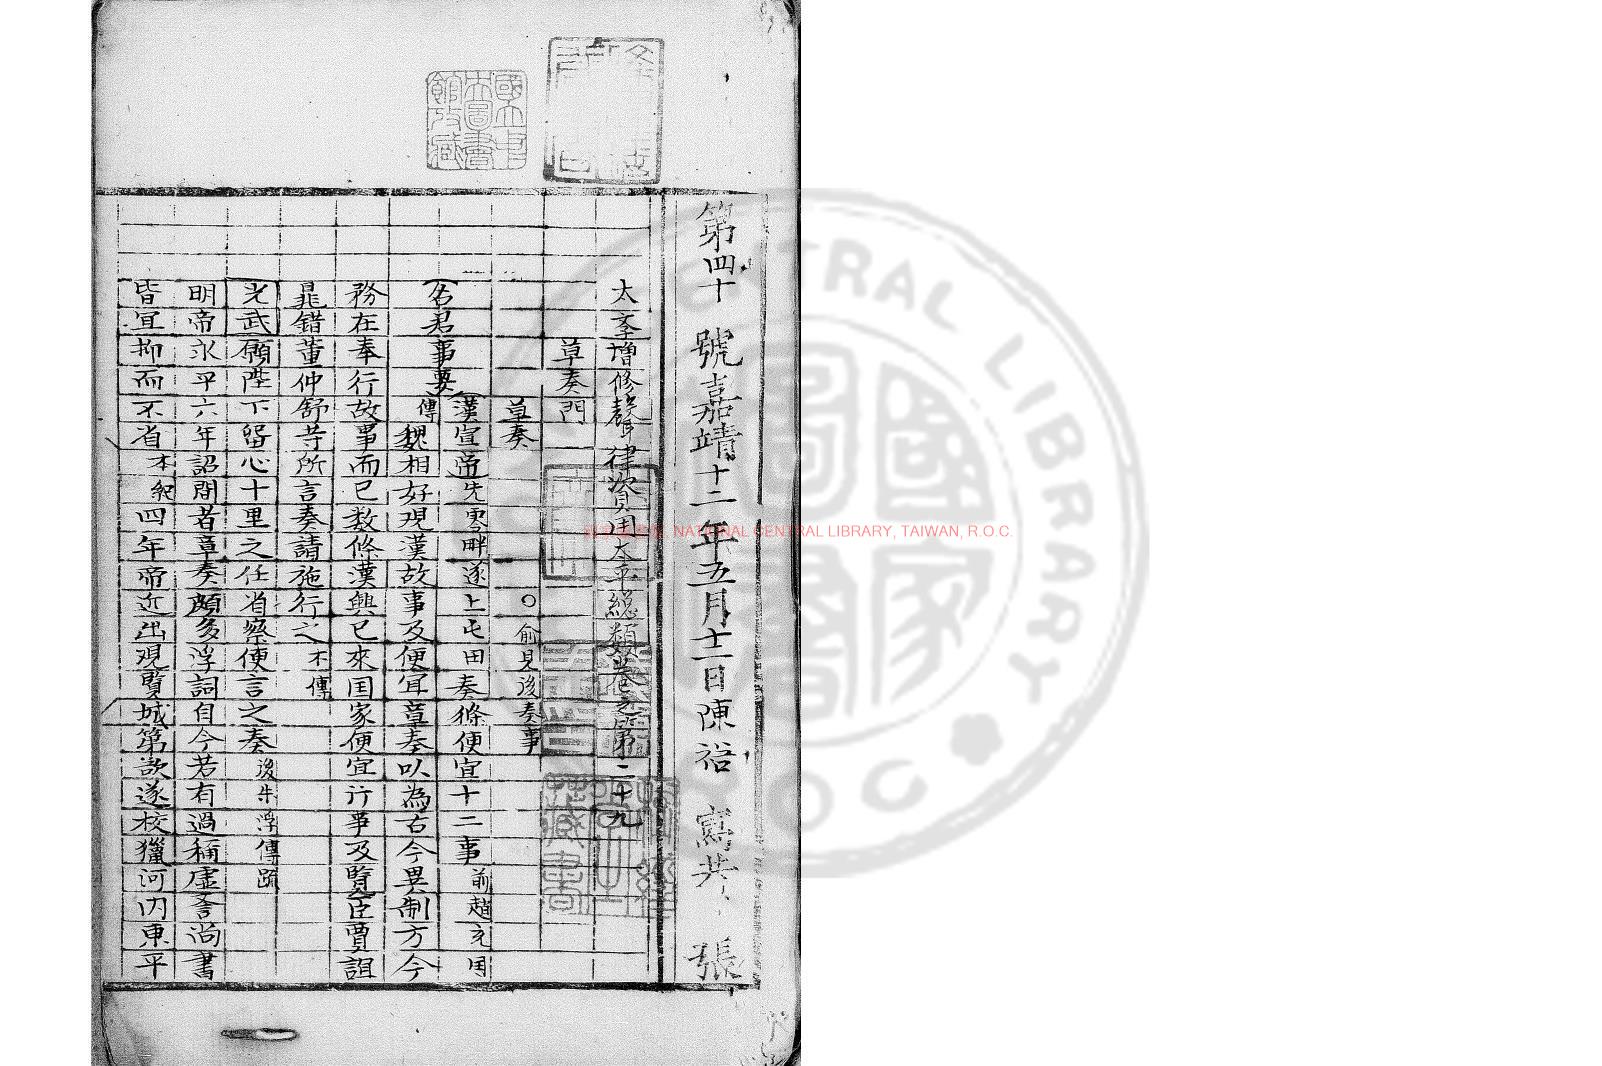 第四十 號嘉靖十二年五月十二日陳裕 寫共 張
太學增修聲律資用太平總類卷之第二十九
草奏門
草奏 ○俞見後奏事
名君事要 漢宣帝先零畔遂上屯田奏條便宜十二事前趙充国
傳 魏相好观漢故事及便宜章奏以為古今異制方今
務在奉行故事而已数條漢興已來国家便宜行事及賢臣賈誼
晁錯董仲舒等所言奏請施行之本傳
光武願陛下留心十里之任省察便言之奏後朱浮傳疏
明帝永平六年詔間者章奏頗多浮詞自今若有過稱虛誉尚書
皆宜抑而不省本紀四年帝近出观覽城第欲遂校獵河内東平
國立中央圖書館收藏
NATIONAL CENTRAL LIBRARY, TAIWAN, R.O.C.
CENTRAL LIBRARY ROC